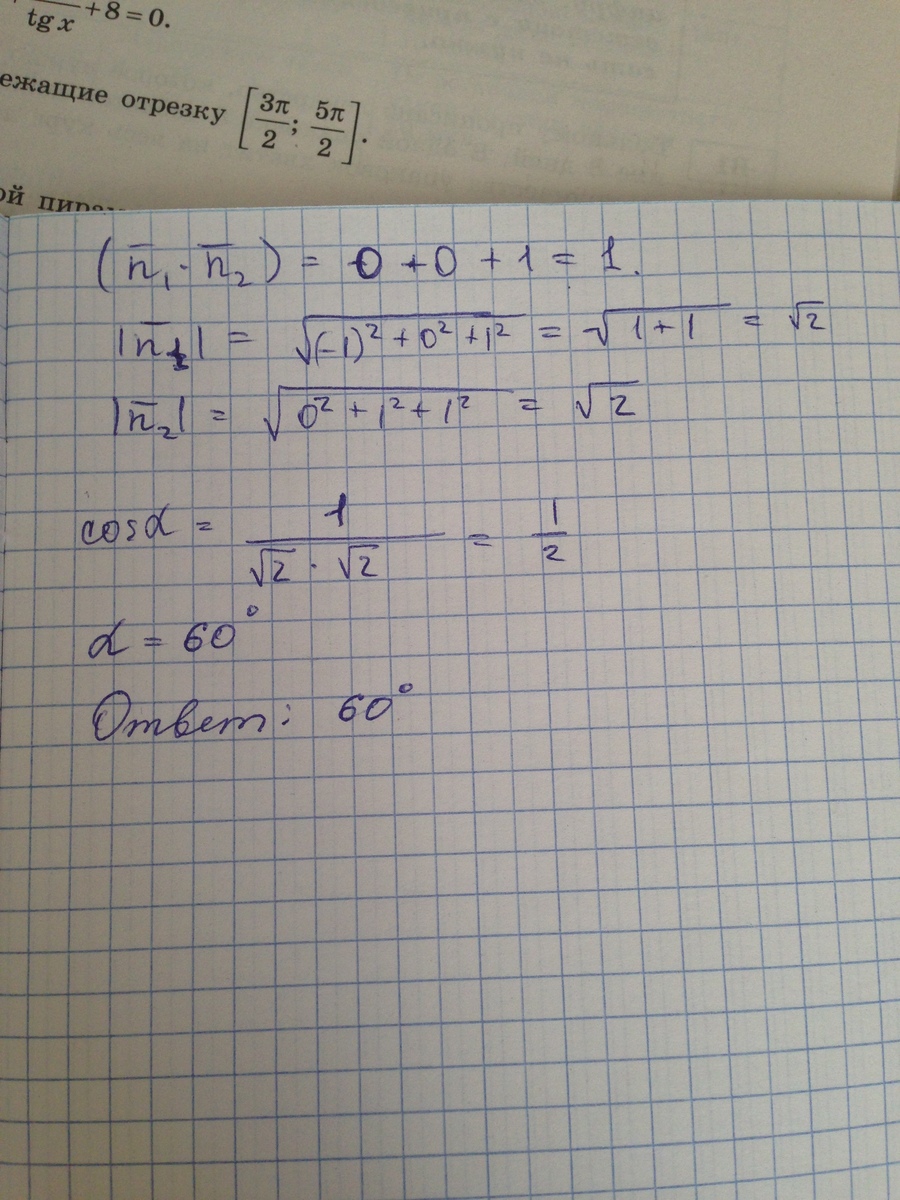 tg x +8=0.
ежащие отрезку [3π/2; 5π/2].
ой пирам
(n̅₁·n̅₂) = 0 + 0 + 1 = 1.
|n̅₁| = √((-1)² + 0² + 1²) = √(1+1) = √2
|n̅₂| = √(0² + 1² + 1²) = √2
cosα = 1/(√2 · √2) = 1/2
α = 60°
Ответ: 60°